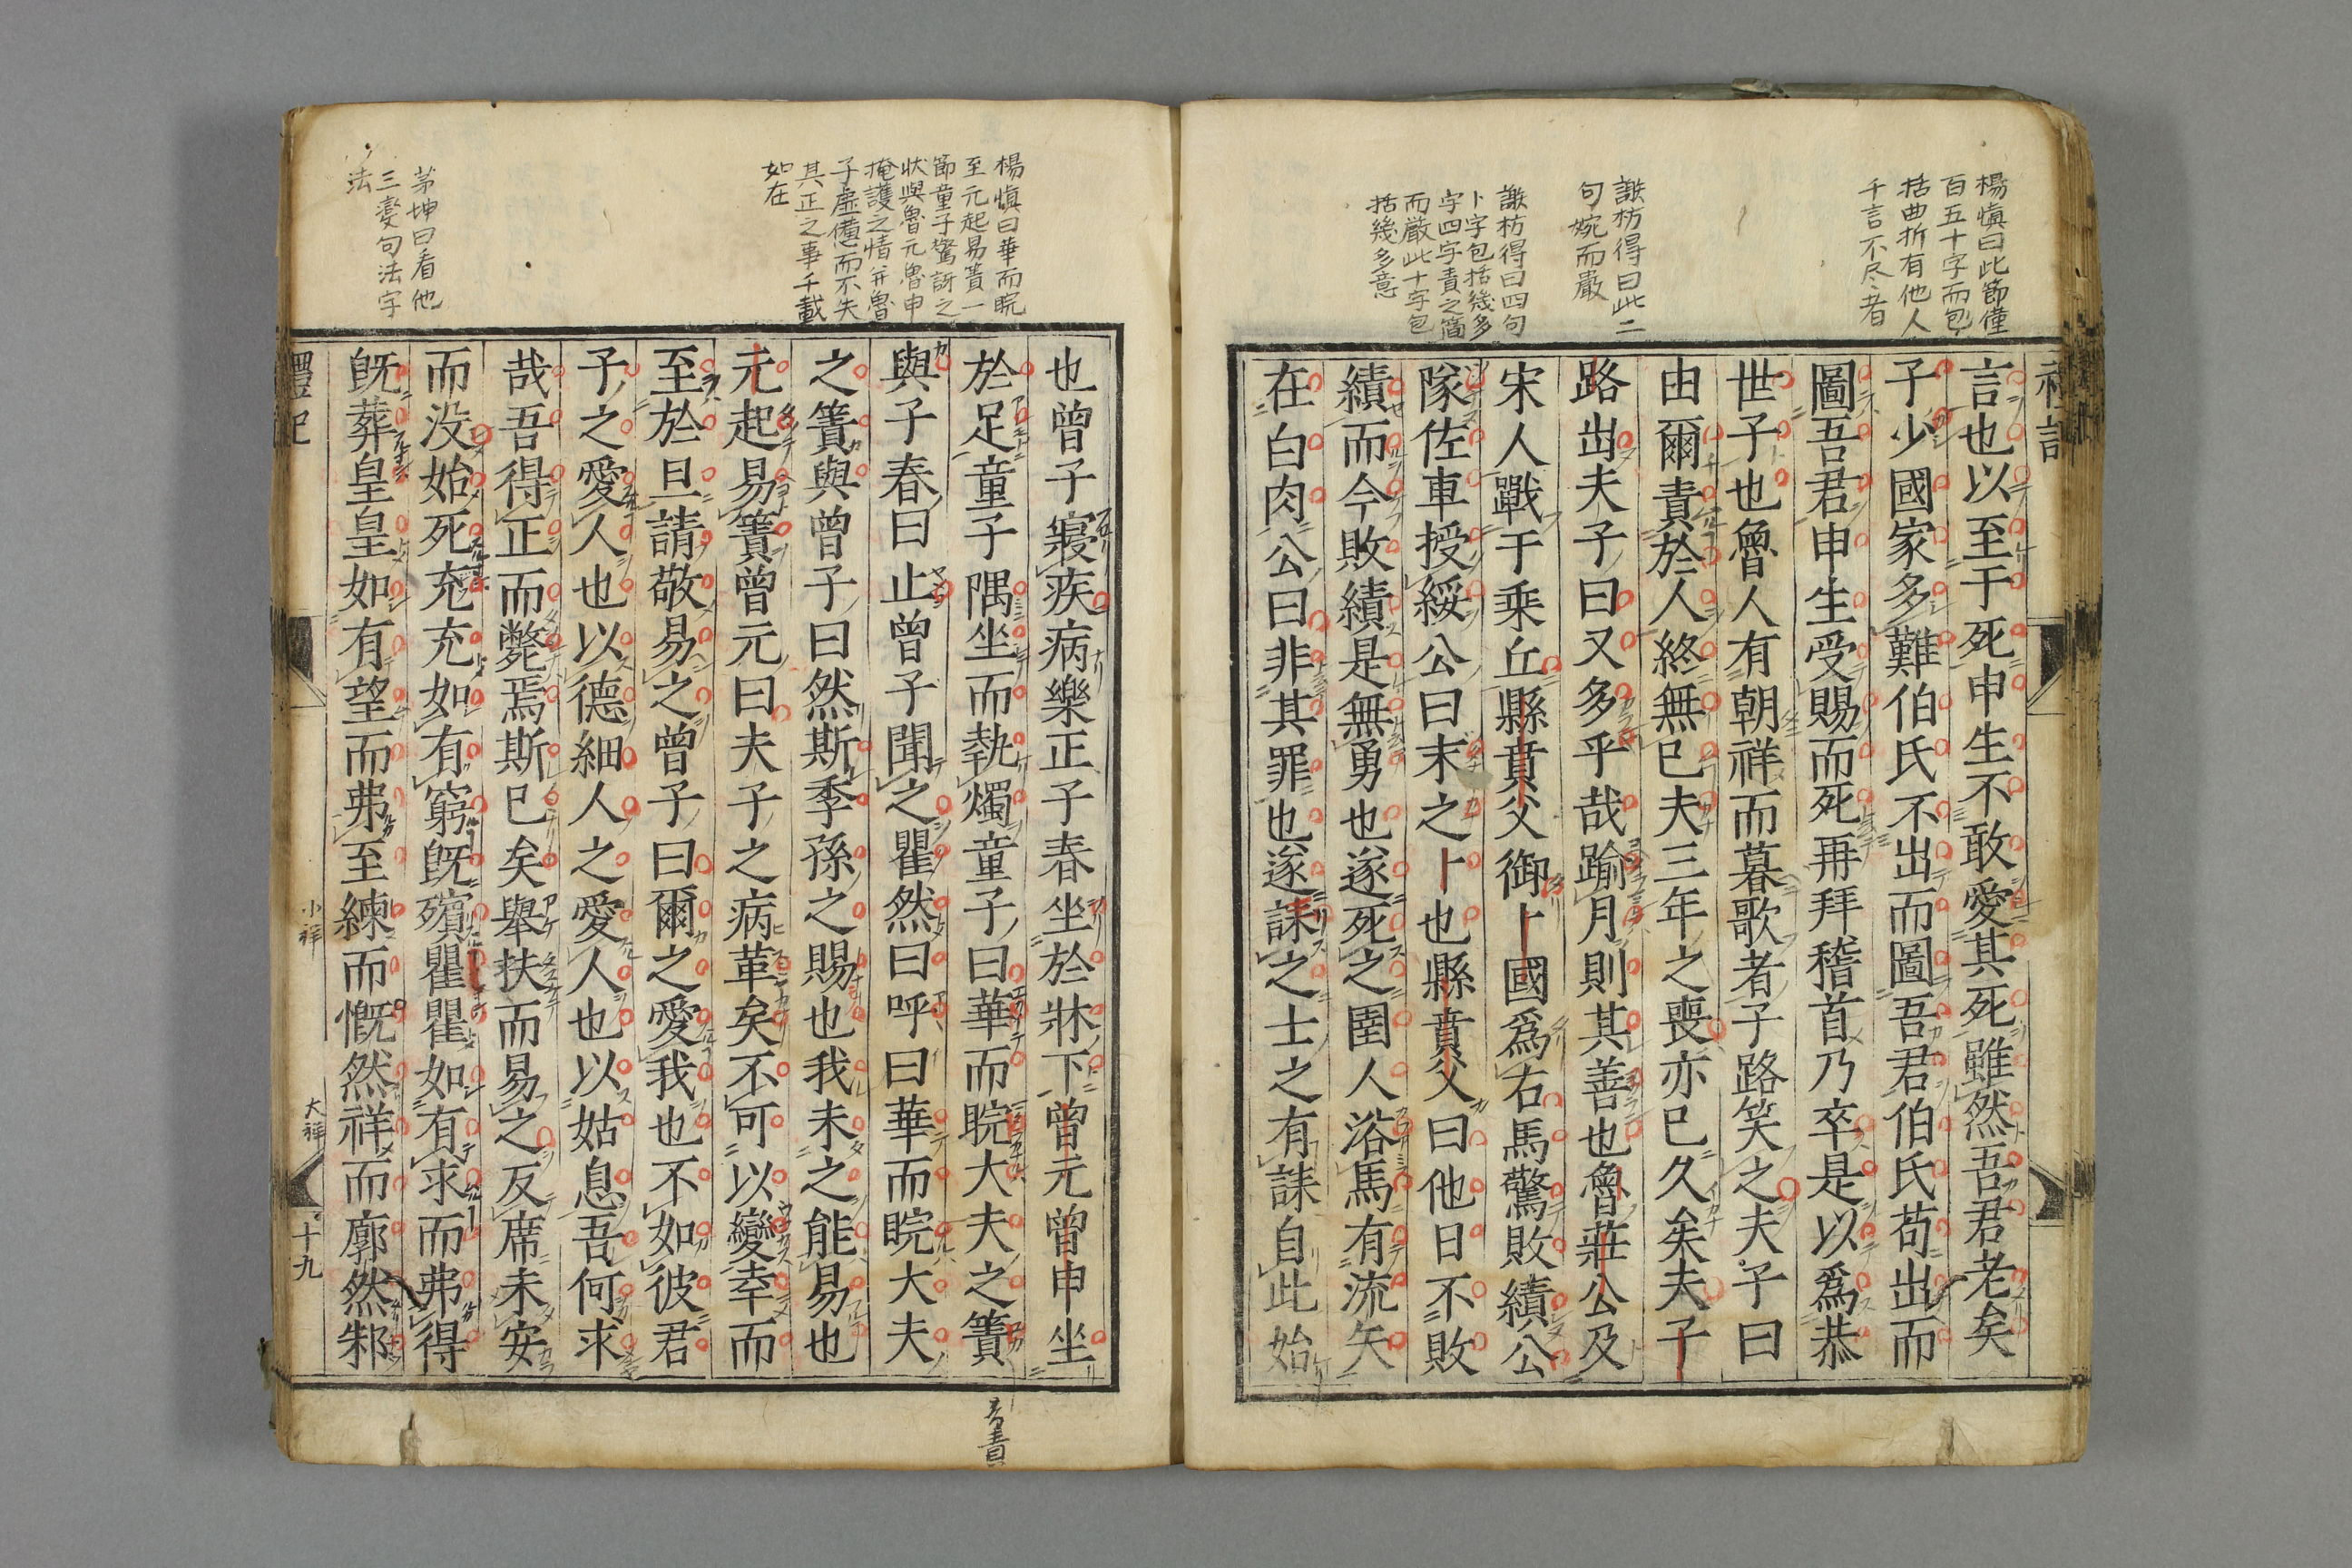 楊慎曰此節僅
百五十字而包
括曲折有他人
千言不尽者
謝枋得曰此二
句婉而嚴
謝枋得曰四句
卜字包括幾多
字四字責之簡
而嚴此十字包
括幾多意
言也以至于死申生不敢愛其死雖然吾君老矣
子少國家多難伯氏不出而圖吾君伯氏苟出而
圖吾君申生受賜而死再拜稽首乃卒是以爲恭
世子也魯人有朝祥而暮歌者子路笑之夫子曰
由爾責於人終無已夫三年之喪亦已久矣夫子
路出夫子曰又多乎哉踰月則其善也魯莊公及
宋人戰于乘丘縣賁父御卜國爲右馬驚敗績公
隊佐車授綏公曰末之卜也縣賁父曰他日不敗
績而今敗績是無勇也遂死之圉人浴馬有流矢
在白肉公曰非其罪也遂誄之士之有誄自此始
楊慎曰華而睆
至元起易簀一
節童子驚訝之
状與魯元魯申
掩護之情并魯
子虛憊而不失
其正之事千載
如在
茅坤曰看他
三変句法字
法
也曾子寢疾病樂正子春坐於牀下曾元曾申坐
於足童子隅坐而執燭童子曰華而睆大夫之簀
與子春曰止曾子聞之瞿然曰呼曰華而睆大夫
之簀與曾子曰然斯季孫之賜也我未之能易也
元起易簀曾元曰夫子之病革矣不可以變幸而
至於旦請敬易之曾子曰爾之愛我也不如彼君
子之愛人也以德細人之愛人也以姑息吾何求
哉吾得正而斃焉斯已矣舉扶而易之反席未安
而没始死充充如有窮既殯瞿瞿如有求而弗得
既葬皇皇如有望而弗至練而慨然祥而廓然邾
小祥
大祥
音責
禮記
十九